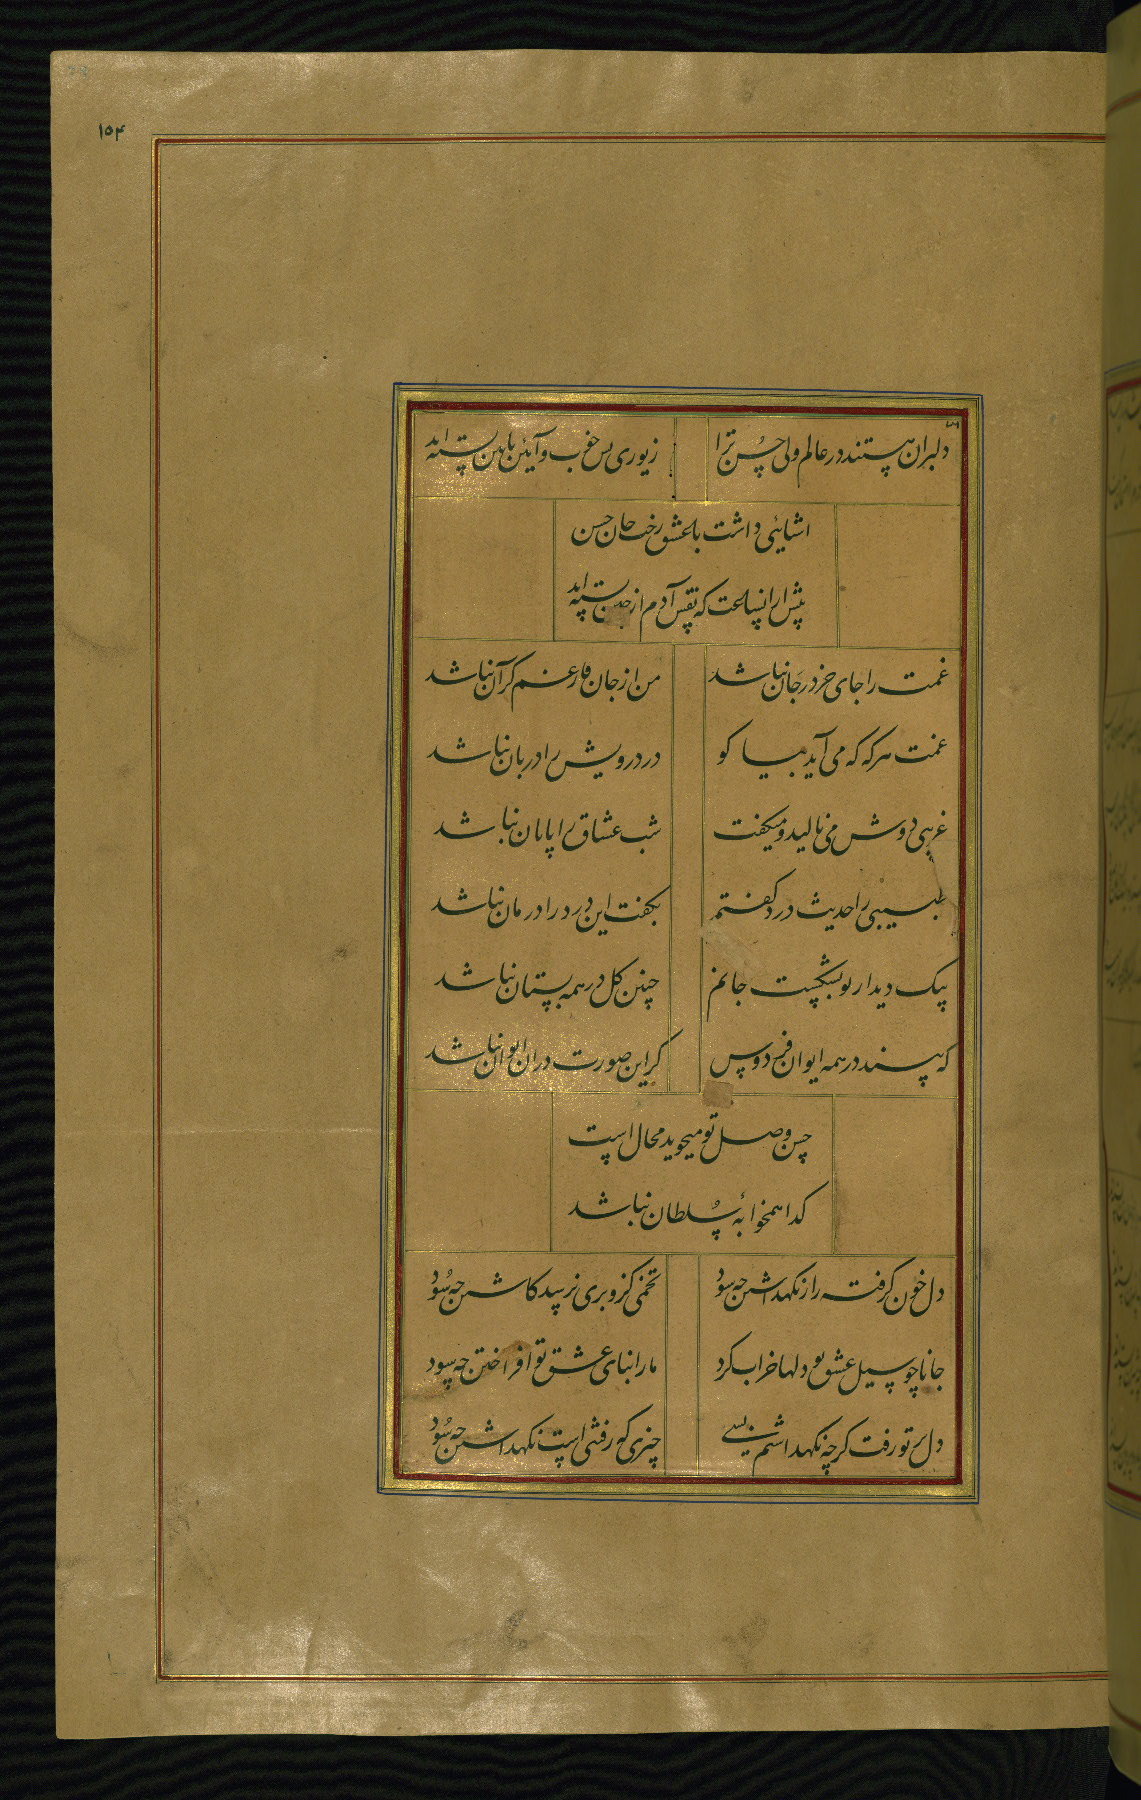 ۱۵۴
دلبران هستند در عالم ولی حسن ترا زیوری بس خوب و آیین باین بسته‌اند
اشنایئی داشت باعشق رخت جان حسن
پیش ازان ساعت که نقش آدم از بسته‌اند
غمت را جای جز در جان نباشد من از جان فارغم کر آن نباشد
غمت هرکه که می آید بیا کو در درویش را دربان نباشد
غریبی دوش می نالید و میکفت شب عشاق را پایان نباشد
طبیبی را حدیث درد کفتم بکفت این درد را درمان نباشد
بیک دیدار تو بشکست جانم چنین کل در همه بستان نباشد
که بیند در همه ایوان فردوس کر این صورت دران ایوان نباشد
حسن وصل تو میجوید محال است
کدا همخوابهٔ سلطان نباشد
دل خون کرفت راز نکهداشتن چه سود تخمی کزو بری نرسد کاشتن چه سود
جانا چو سیل عشق تو دلها خراب کرد مارا بنای عشق تو افراختن چه سود
دل بر تو رفت کرچه نکهداشتم بسے چیزی که رفتنی است نکهداشتن چه سود